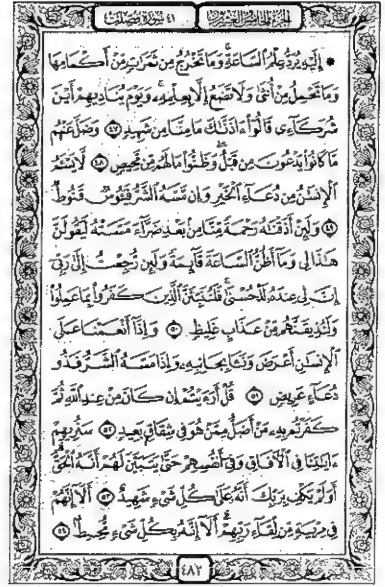 الجزء الخامس والعشرون ٤١ سورة فصلت
۞ إِلَيْهِ يُرَدُّ عِلْمُ السَّاعَةِ ۚ وَمَا تَخْرُجُ مِن ثَمَرَٰتٍ مِّنْ أَكْمَامِهَا
وَمَا تَحْمِلُ مِنْ أُنثَىٰ وَلَا تَضَعُ إِلَّا بِعِلْمِهِ ۚ وَيَوْمَ يُنَادِيهِمْ أَيْنَ
شُرَكَآءِى قَالُوٓا۟ ءَاذَنَّٰكَ مَا مِنَّا مِن شَهِيدٍ ٤٧ وَضَلَّ عَنْهُم
مَّا كَانُوا۟ يَدْعُونَ مِن قَبْلُ ۖ وَظَنُّوا۟ مَا لَهُم مِّن مَّحِيصٍ ٤٨ لَّا يَسْـَٔمُ
الْإِنسَٰنُ مِن دُعَآءِ الْخَيْرِ وَإِن مَّسَّهُ الشَّرُّ فَيَـُٔوسٌ قَنُوطٌ
٤٩ وَلَئِنْ أَذَقْنَٰهُ رَحْمَةً مِّنَّا مِنۢ بَعْدِ ضَرَّآءَ مَسَّتْهُ لَيَقُولَنَّ
هَٰذَا لِى وَمَآ أَظُنُّ السَّاعَةَ قَآئِمَةً وَلَئِن رُّجِعْتُ إِلَىٰ رَبِّىٓ
إِنَّ لِى عِندَهُۥ لَلْحُسْنَىٰ ۚ فَلَنُنَبِّئَنَّ الَّذِينَ كَفَرُوا۟ بِمَا عَمِلُوا۟
وَلَنُذِيقَنَّهُم مِّنْ عَذَابٍ غَلِيظٍ ٥٠ وَإِذَآ أَنْعَمْنَا عَلَى
الْإِنسَٰنِ أَعْرَضَ وَنَـَٔا بِجَانِبِهِۦ وَإِذَا مَسَّهُ الشَّرُّ فَذُو
دُعَآءٍ عَرِيضٍ ٥١ قُلْ أَرَءَيْتُمْ إِن كَانَ مِنْ عِندِ اللَّهِ ثُمَّ
كَفَرْتُم بِهِۦ مَنْ أَضَلُّ مِمَّنْ هُوَ فِى شِقَاقٍۭ بَعِيدٍ ٥٢ سَنُرِيهِمْ
ءَايَٰتِنَا فِى الْـَٔافَاقِ وَفِىٓ أَنفُسِهِمْ حَتَّىٰ يَتَبَيَّنَ لَهُمْ أَنَّهُ الْحَقُّ ۗ
أَوَلَمْ يَكْفِ بِرَبِّكَ أَنَّهُۥ عَلَىٰ كُلِّ شَىْءٍ شَهِيدٌ ٥٣ أَلَآ إِنَّهُمْ
فِى مِرْيَةٍ مِّن لِّقَآءِ رَبِّهِمْ ۗ أَلَآ إِنَّهُۥ بِكُلِّ شَىْءٍ مُّحِيطٌۢ ٥٤
٤٨٢